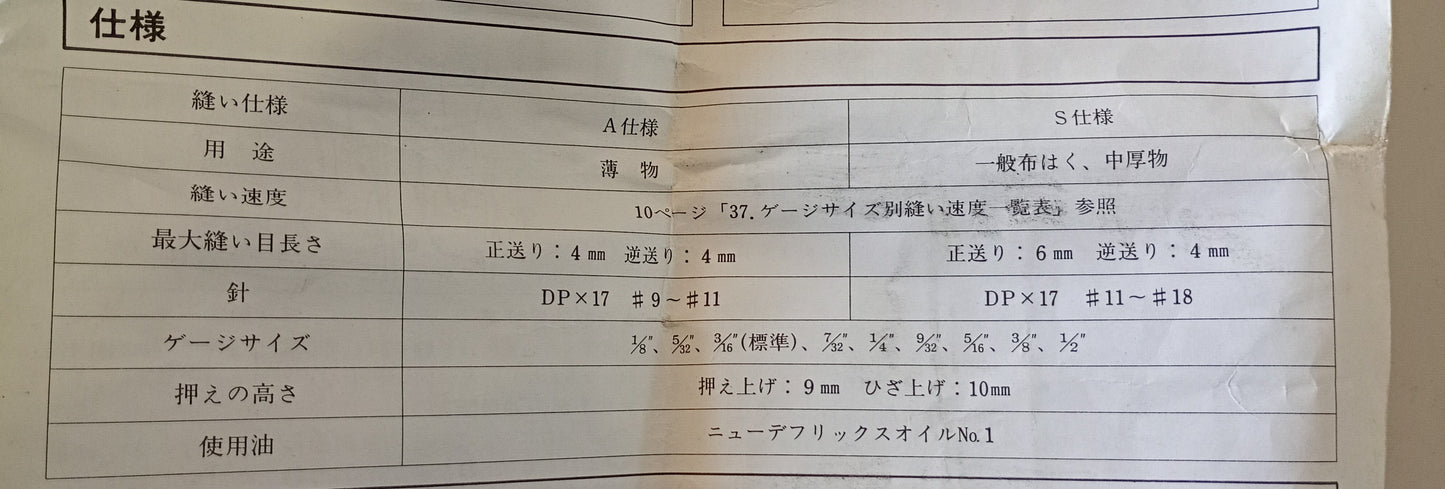 仕様
縫い仕様 A仕様 S仕様
用 途 薄 物 一般布はく、中厚物
縫い速度 10ページ「37.ゲージサイズ別縫い速度一覧表」参照
最大縫い目長さ 正送り：4㎜ 逆送り：4㎜ 正送り：6㎜ 逆送り：4㎜
針 DP×17 ♯9～♯11 DP×17 ♯11～♯18
ゲージサイズ 1/8″、5/32″、3/16″(標準)、7/32″、1/4″、9/32″、5/16″、3/8″、1/2″
押えの高さ 押え上げ：9㎜ ひざ上げ：10㎜
使用油 ニューデフリックスオイル№1